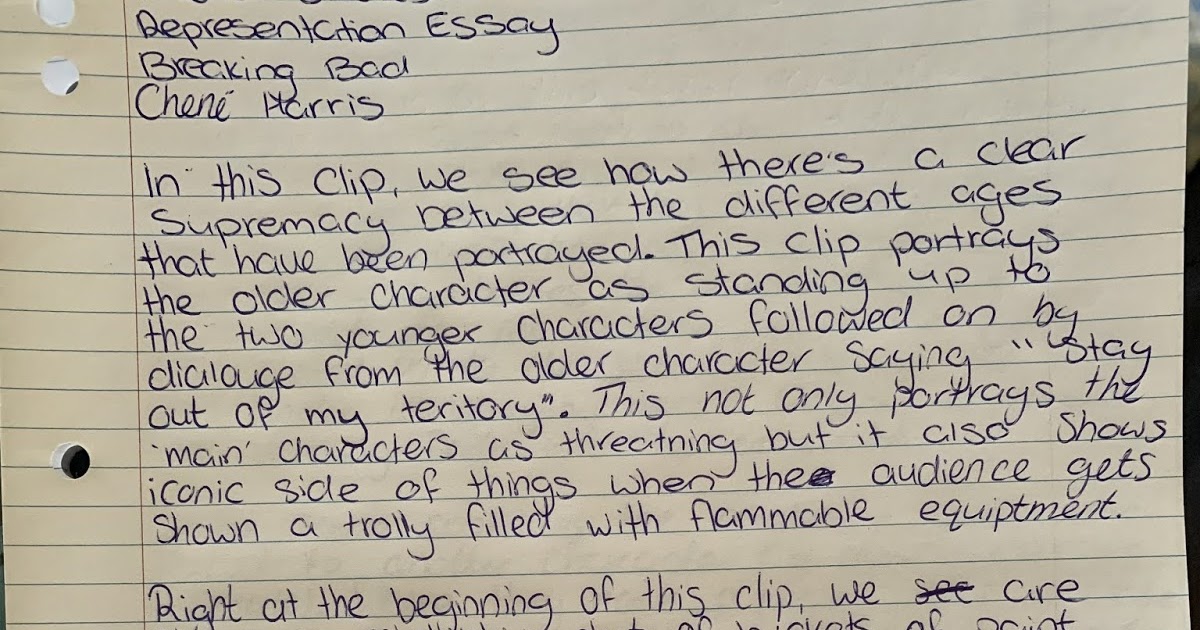 Representation Essay
Breaking Bad
Chené Harris
In this clip, we see how there's a clear
Supremacy between the different ages
that have been portrayed. This clip portrays
the older character as standing up to
the two younger characters followed on by
dialouge from the older character saying "Stay
out of my teritory". This not only portrays the
'main' characters as threatning but it also shows
iconic side of things when the audience gets
shown a trolly filled with flammable equiptment.
Right at the beginning of this clip, we see are
of paint